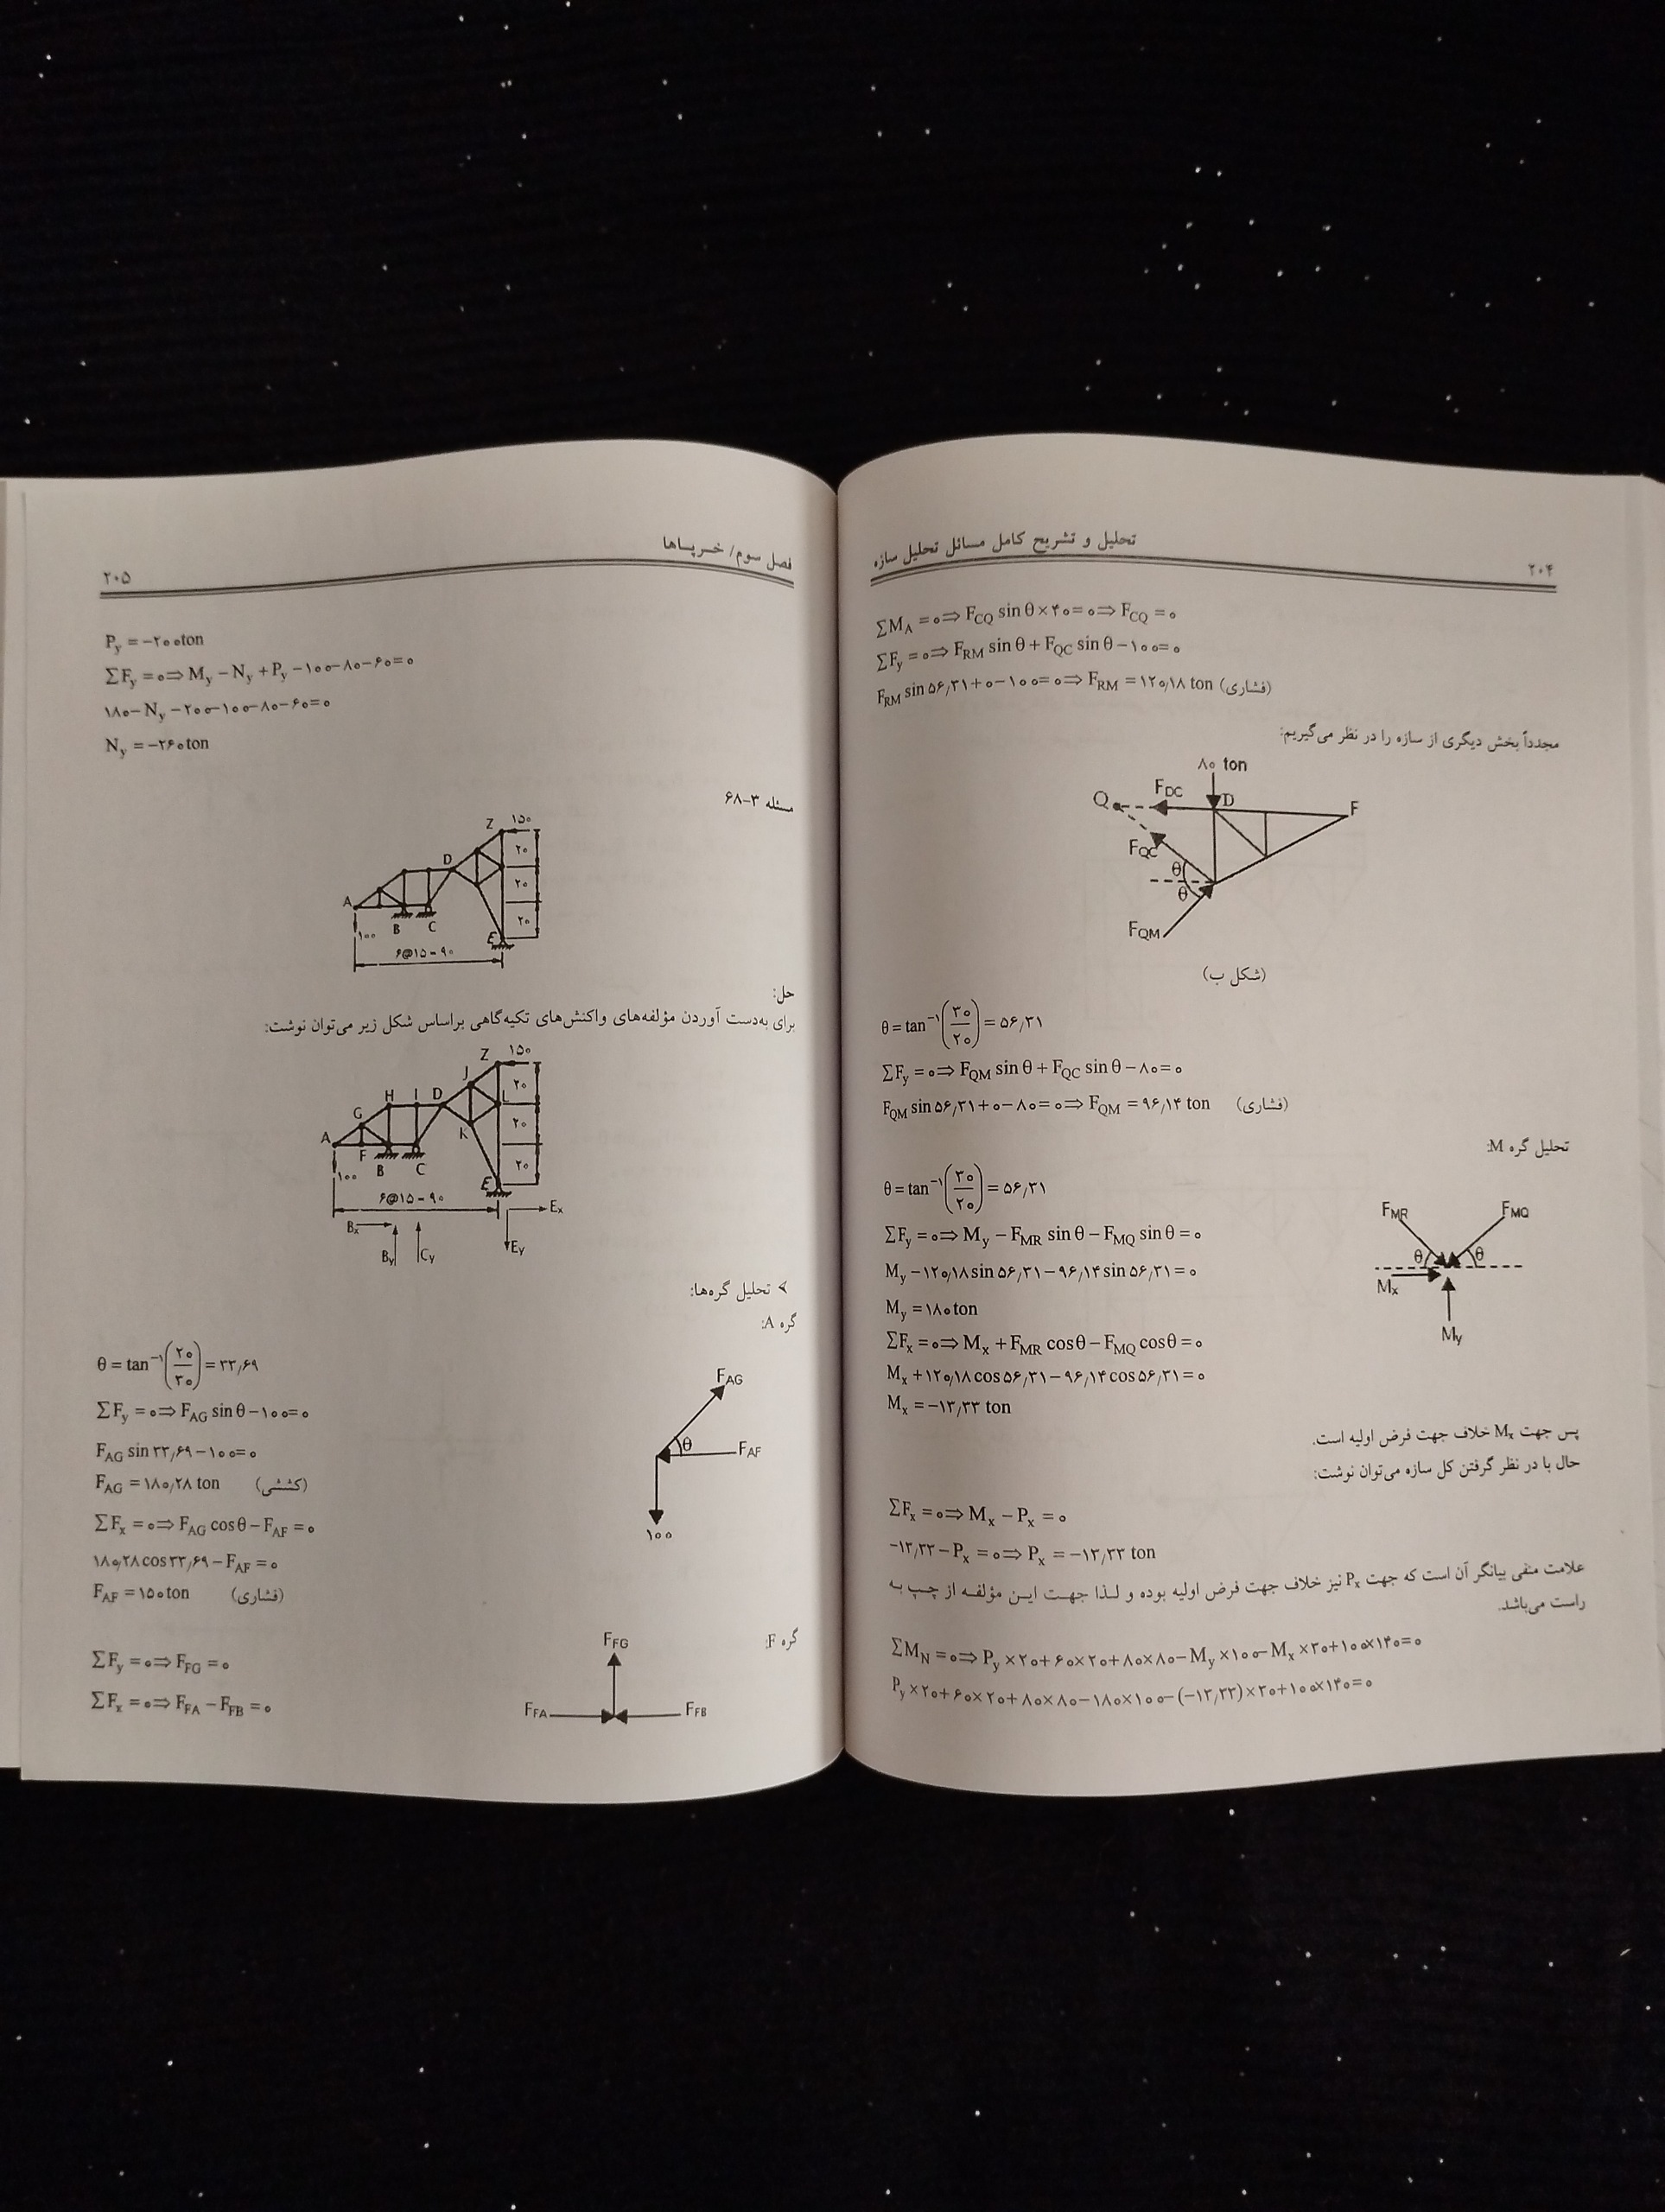 تحلیل و تشریح کامل مسائل تحلیل سازه
۲۰۴
∑M_A = ۰ ⇒ F_CQ sin θ × ۴۰ = ۰ ⇒ F_CQ = ۰
∑F_y = ۰ ⇒ F_RM sin θ + F_QC sin θ − ۱۰۰ = ۰
F_RM sin ۵۶٫۳۱ + ۰ − ۱۰۰ = ۰ ⇒ F_RM = ۱۲۰٫۱۸ ton (فشاری)
مجدداً بخش دیگری از سازه را در نظر می‌گیریم:
۸۰ ton
Q
F_DC
D
F
F_QC
θ
θ
F_QM
(شکل ب)
θ = tan⁻¹(۳۰/۲۰) = ۵۶٫۳۱
∑F_y = ۰ ⇒ F_QM sin θ + F_QC sin θ − ۸۰ = ۰
F_QM sin ۵۶٫۳۱ + ۰ − ۸۰ = ۰ ⇒ F_QM = ۹۶٫۱۴ ton (فشاری)
تحلیل گره M:
θ = tan⁻¹(۳۰/۲۰) = ۵۶٫۳۱
∑F_y = ۰ ⇒ M_y − F_MR sin θ − F_MQ sin θ = ۰
M_y − ۱۲۰٫۱۸ sin ۵۶٫۳۱ − ۹۶٫۱۴ sin ۵۶٫۳۱ = ۰
M_y = ۱۸۰ ton
∑F_x = ۰ ⇒ M_x + F_MR cosθ − F_MQ cosθ = ۰
M_x + ۱۲۰٫۱۸ cos ۵۶٫۳۱ − ۹۶٫۱۴ cos ۵۶٫۳۱ = ۰
M_x = −۱۳٫۳۳ ton
F_MR
F_MQ
θ
θ
M_x
M_y
پس جهت M_x خلاف جهت فرض اولیه است.
حال با در نظر گرفتن کل سازه می‌توان نوشت:
∑F_x = ۰ ⇒ M_x − P_x = ۰
−۱۳٫۳۳ − P_x = ۰ ⇒ P_x = −۱۳٫۳۳ ton
علامت منفی بیانگر آن است که جهت P_x نیز خلاف جهت فرض اولیه بوده و لـذا جهـت ایـن مؤلفـه از چـپ بـه
راست می‌باشد.
∑M_N = ۰ ⇒ P_y × ۲۰ + ۶۰ × ۲۰ + ۸۰ × ۸۰ − M_y × ۱۰۰ − M_x × ۳۰ + ۱۰۰ × ۱۴۰ = ۰
P_y × ۲۰ + ۶۰ × ۲۰ + ۸۰ × ۸۰ − ۱۸۰ × ۱۰۰ − (−۱۳٫۳۳) × ۳۰ + ۱۰۰ × ۱۴۰ = ۰
فصل سوم/ خـرپـاها
۲۰۵
P_y = −۲۰۰ ton
∑F_y = ۰ ⇒ M_y − N_y + P_y − ۱۰۰ − ۸۰ − ۶۰ = ۰
۱۸۰ − N_y − ۲۰۰ − ۱۰۰ − ۸۰ − ۶۰ = ۰
N_y = −۲۶۰ ton
مسئله ۳-۶۸
Z
۱۵۰
۲۰
D
۲۰
A
۲۰
۱۰۰
B
C
E
۶@۱۵ = ۹۰
حل:
برای به‌دست آوردن مؤلفه‌های واکنش‌های تکیه‌گاهی براساس شکل زیر می‌توان نوشت:
Z
۱۵۰
J
۲۰
H I D
L
G
۲۰
K
A
F
۲۰
۱۰۰
B
C
E
۶@۱۵ = ۹۰
E_x
B_x
B_y
C_y
E_y
➢ تحلیل گره‌ها:
گره A:
θ = tan⁻¹(۲۰/۳۰) = ۳۳٫۶۹
∑F_y = ۰ ⇒ F_AG sin θ − ۱۰۰ = ۰
F_AG sin ۳۳٫۶۹ − ۱۰۰ = ۰
F_AG = ۱۸۰٫۲۸ ton (کششی)
∑F_x = ۰ ⇒ F_AG cos θ − F_AF = ۰
۱۸۰٫۲۸ cos ۳۳٫۶۹ − F_AF = ۰
F_AF = ۱۵۰ ton (فشاری)
F_AG
θ
F_AF
۱۰۰
گره F:
∑F_y = ۰ ⇒ F_FG = ۰
∑F_x = ۰ ⇒ F_FA − F_FB = ۰
F_FG
F_FA
F_FB